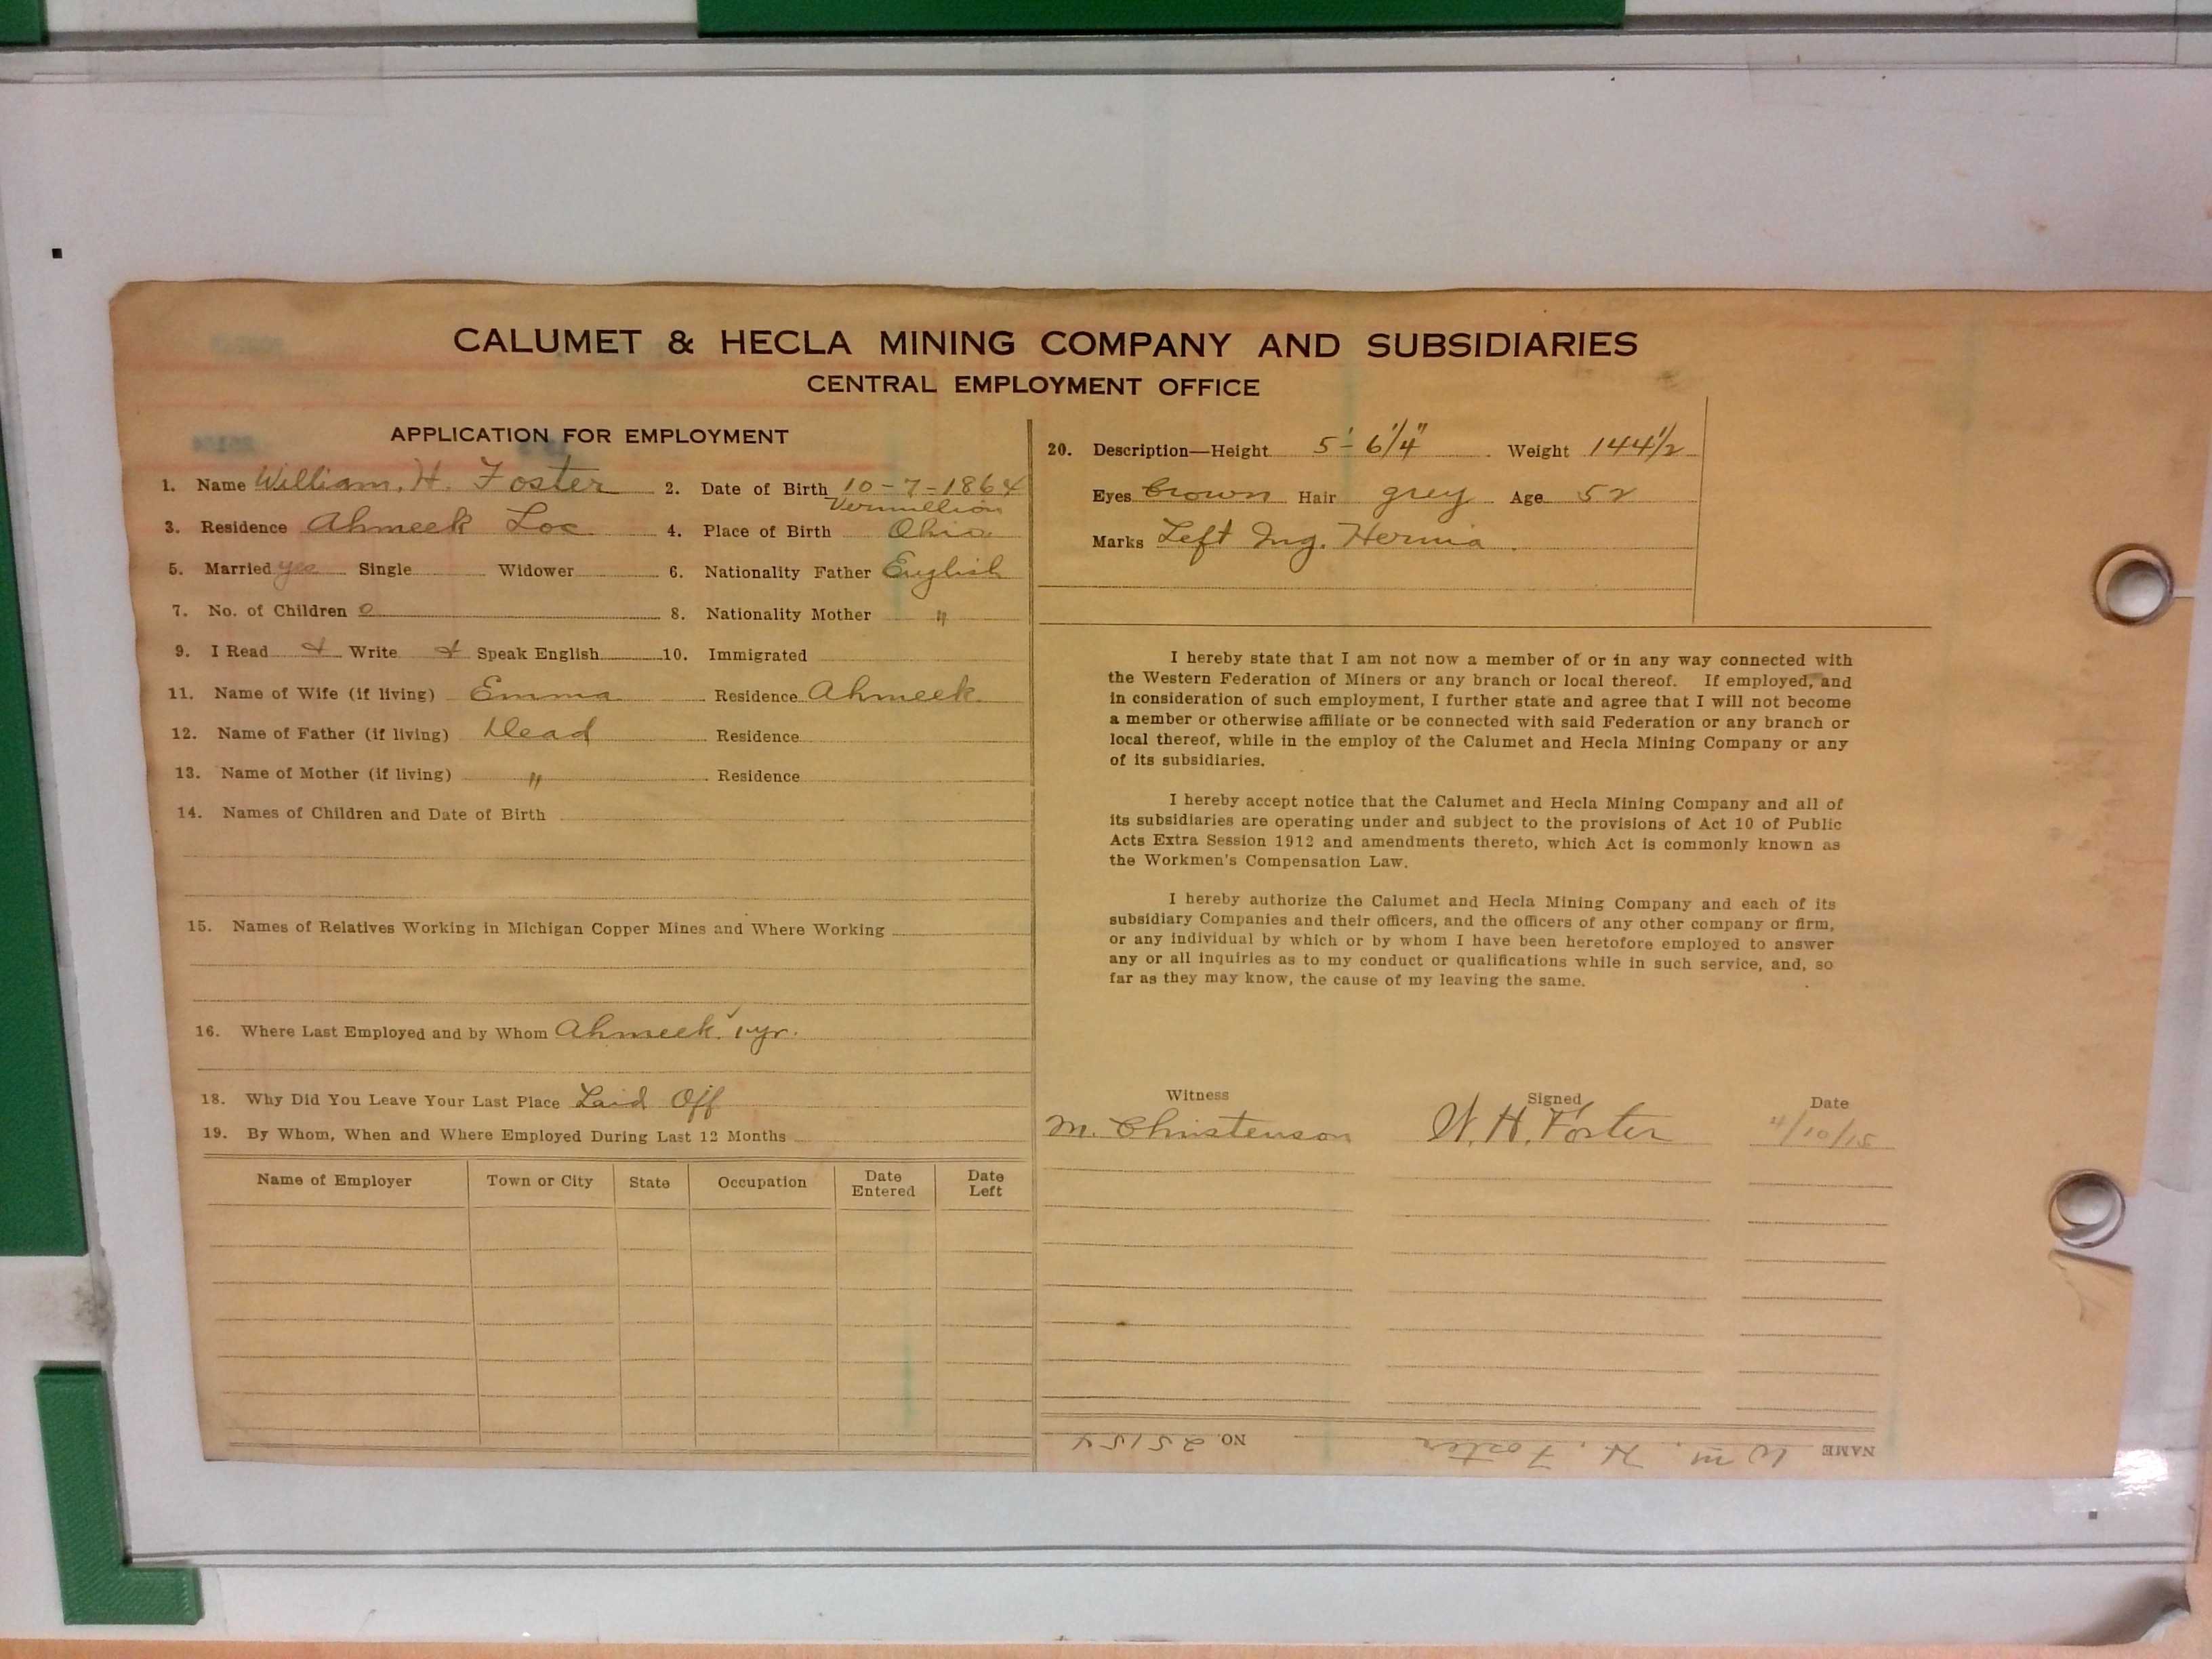 CALUMET & HECLA MINING COMPANY AND SUBSIDIARIES
CENTRAL EMPLOYMENT OFFICE
APPLICATION FOR EMPLOYMENT
1. Name William. H. Foster 2. Date of Birth 10-7-1864
Vermillion
3. Residence Ahmeek Loc 4. Place of Birth Ohio
5. Married yes Single Widower 6. Nationality Father English
7. No. of Children 0 8. Nationality Mother "
9. I Read & Write & Speak English 10. Immigrated
11. Name of Wife (if living) Emma Residence Ahmeek.
12. Name of Father (if living) Dead Residence
13. Name of Mother (if living) " Residence
14. Names of Children and Date of Birth
15. Names of Relatives Working in Michigan Copper Mines and Where Working
16. Where Last Employed and by Whom Ahmeek. 1 yr.
18. Why Did You Leave Your Last Place Laid Off
19. By Whom, When and Where Employed During Last 12 Months
Name of Employer Town or City State Occupation Date Entered Date Left
20. Description—Height 5'- 6 1/4" Weight 144 1/2
Eyes brown Hair grey Age 52
Marks Left Ing. Hernia.
I hereby state that I am not now a member of or in any way connected with
the Western Federation of Miners or any branch or local thereof. If employed, and
in consideration of such employment, I further state and agree that I will not become
a member or otherwise affiliate or be connected with said Federation or any branch or
local thereof, while in the employ of the Calumet and Hecla Mining Company or any
of its subsidiaries.
I hereby accept notice that the Calumet and Hecla Mining Company and all of
its subsidiaries are operating under and subject to the provisions of Act 10 of Public
Acts Extra Session 1912 and amendments thereto, which Act is commonly known as
the Workmen's Compensation Law.
I hereby authorize the Calumet and Hecla Mining Company and each of its
subsidiary Companies and their officers, and the officers of any other company or firm,
or any individual by which or by whom I have been heretofore employed to answer
any or all inquiries as to my conduct or qualifications while in such service, and, so
far as they may know, the cause of my leaving the same.
Witness Signed Date
M. Christenson W. H. Foster 4/10/15
NAME Wm. H. Foster NO. 25154